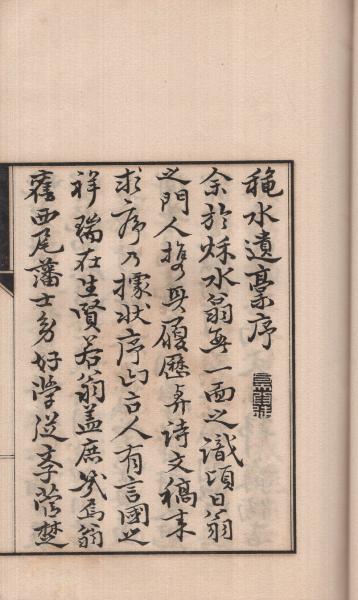 穐水遺稾序
余於穐水翁無一面之識頃日翁
之門人携其履歷幷詩文稿来
求序乃據狀序之曰古人有言國之
祥瑞在生賢若翁蓋庶幾焉翁
舊西尾藩士多好学從李